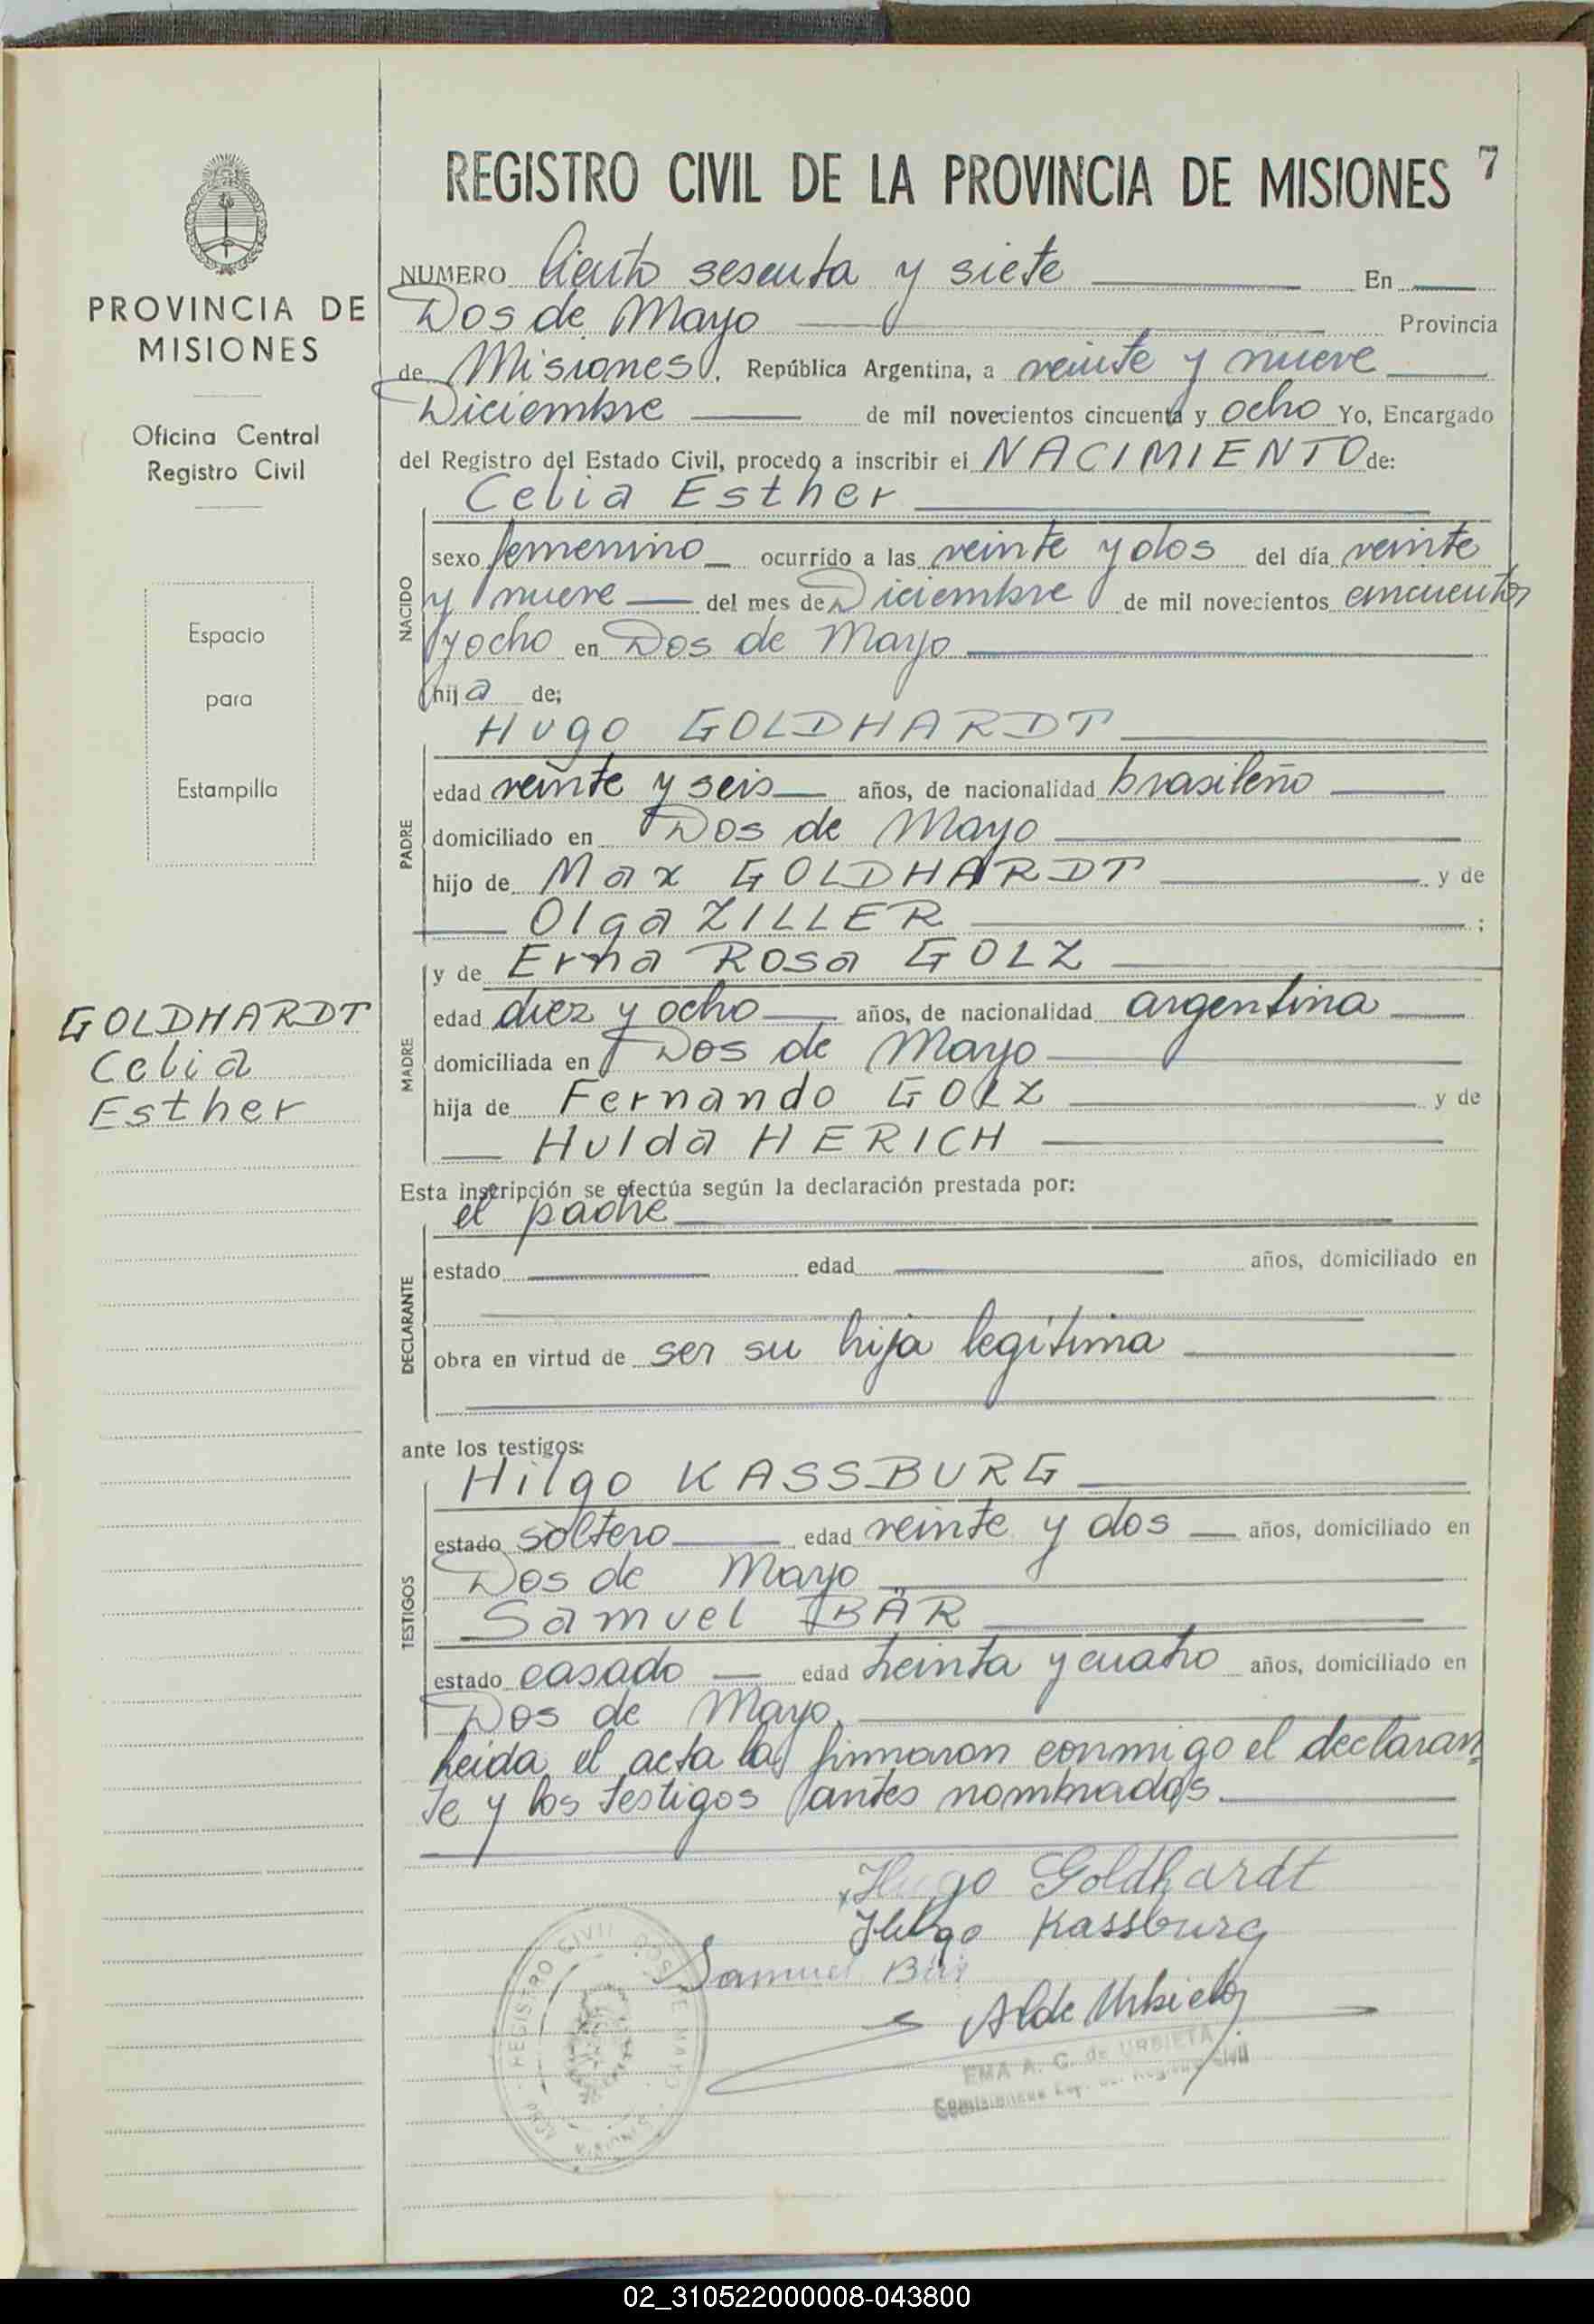 REGISTRO CIVIL DE LA PROVINCIA DE MISIONES 7
PROVINCIA DE
MISIONES
Oficina Central
Registro Civil
Espacio
para
Estampilla
GOLDHARDT
Celia
Esther
NUMERO Ciento sesenta y siete En
Dos de Mayo Provincia
de Misiones, República Argentina, a veinte y nueve
Diciembre de mil novecientos cincuenta y ocho Yo, Encargado
del Registro del Estado Civil, procedo a inscribir el NACIMIENTO de:
Celia Esther
NACIDO
sexo femenino ocurrido a las veinte y dos del día veinte
y nueve del mes de Diciembre de mil novecientos cincuenta
y ocho en Dos de Mayo
hija de;
Hugo GOLDHARDT
PADRE
edad veinte y seis años, de nacionalidad brasileño
domiciliado en Dos de Mayo
hijo de Max GOLDHARDT y de
Olga ZILLER ;
MADRE
y de Erna Rosa GOLZ
edad diez y ocho años, de nacionalidad argentina
domiciliada en Dos de Mayo
hija de Fernando GOLZ y de
Hulda HERICH
Esta inscripción se efectúa según la declaración prestada por:
el padre
DECLARANTE
estado edad años, domiciliado en
obra en virtud de ser su hija legítima
ante los testigos:
Hilgo KASSBURG
TESTIGOS
estado soltero edad veinte y dos años, domiciliado en
Dos de Mayo
Samuel BÄR
estado casado edad treinta y cuatro años, domiciliado en
Dos de Mayo.
Leida el acta la firmaron conmigo el declaran-
te y los testigos antes nombrados.
Hugo Goldhardt
Hilgo Kassburg
Samuel Bär
A de Urbieta
EMA A. C. de URBIETA
REGISTRO CIVIL DOS DE MAYO
MISIONES
02_310522000008-043800